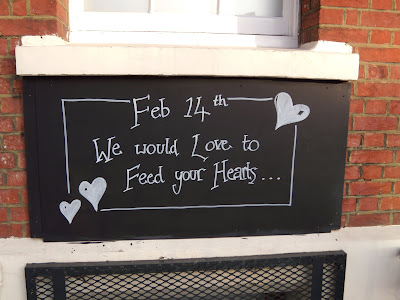 Feb 14th
We would Love to
Feed your Hearts...